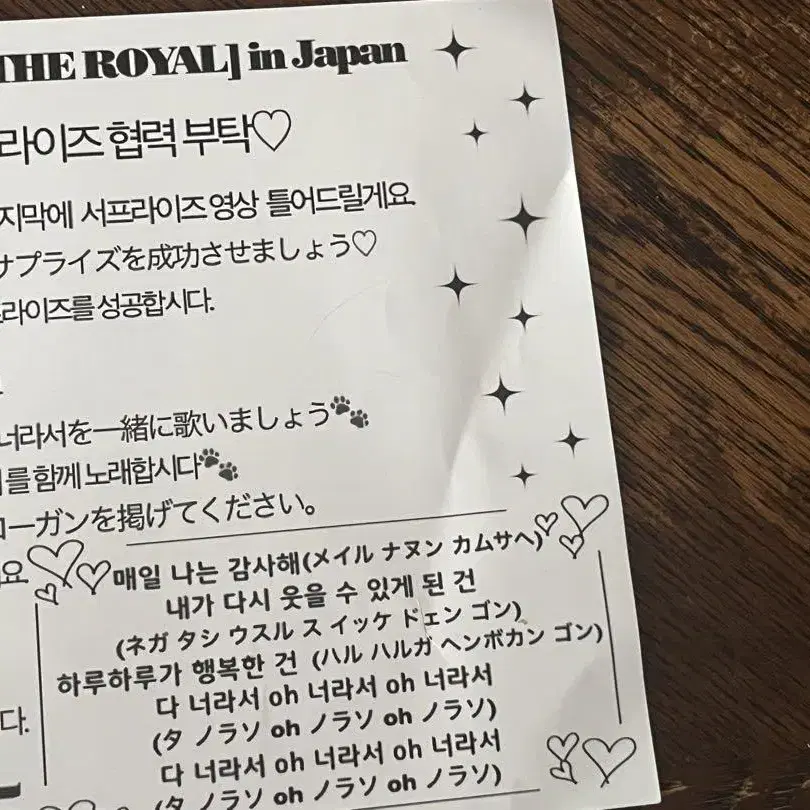 THE ROYAL] in Japan
라이즈 협력 부탁♡
지막에 서프라이즈 영상 틀어드릴게요.
サプライズを成功させましょう♡
라이즈를 성공합시다.
너라서を一緒に歌いましょう
를 함께 노래합시다
ローガンを掲げてください。
요
매일 나는 감사해(メイル ナヌン カムサヘ)
내가 다시 웃을 수 있게 된 건
(ネガ タシ ウスル ス イッケ ドェン ゴン)
하루하루가 행복한 건 (ハル ハルガ ヘンボカン ゴン)
다 너라서 oh 너라서 oh 너라서
(タ ノラソ oh ノラソ oh ノラソ)
다.
다 너라서 oh 너라서 oh 너라서
(タ ノラソ oh ノラソ oh ノラソ)